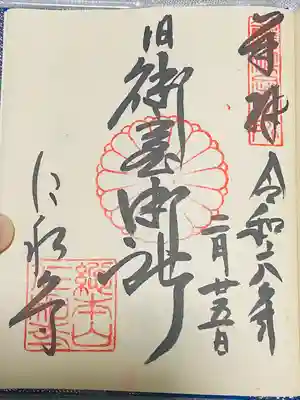 奉拝
令和六年
二月廿五日
旧御室御所
仁和寺
総本山
仁和寺